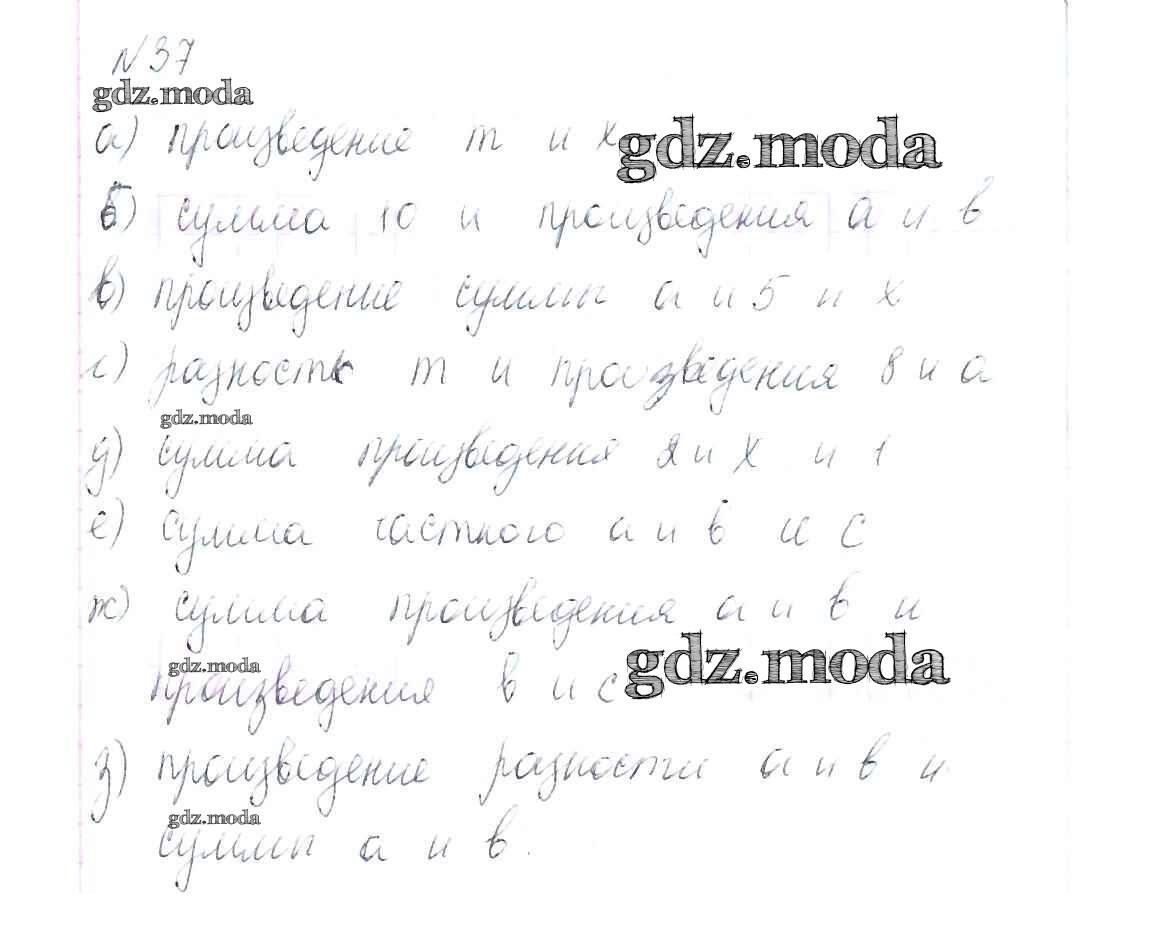 №37
gdz.moda
а) произведение m и x
gdz.moda
б) сумма 10 и произведения a и b
в) произведение суммы a и 5 и x
г) разность m и произведения 8 и a
gdz.moda
д) сумма произведения 2 и x и 1
е) сумма частного a и b и c
ж) сумма произведения a и b и
gdz.moda
произведения b и c
gdz.moda
з) произведение разности a и b и
gdz.moda
суммы a и b.